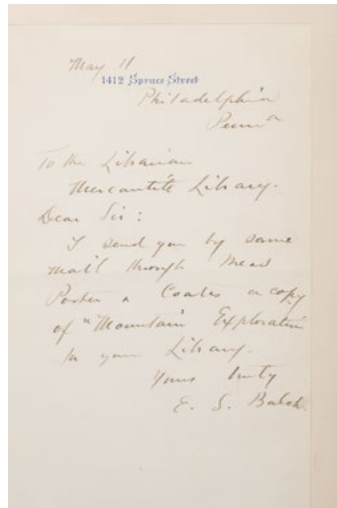 May 11
1412 Spruce Street
Philadelphia
Penn a
To the Librarian
Mercantile Library.
Dear Sir:
I send you by same
mail through Mess
Porter & Coates a copy
of "Mountain Exploration"
to your Library.
Yours truly
E. S. Balch.